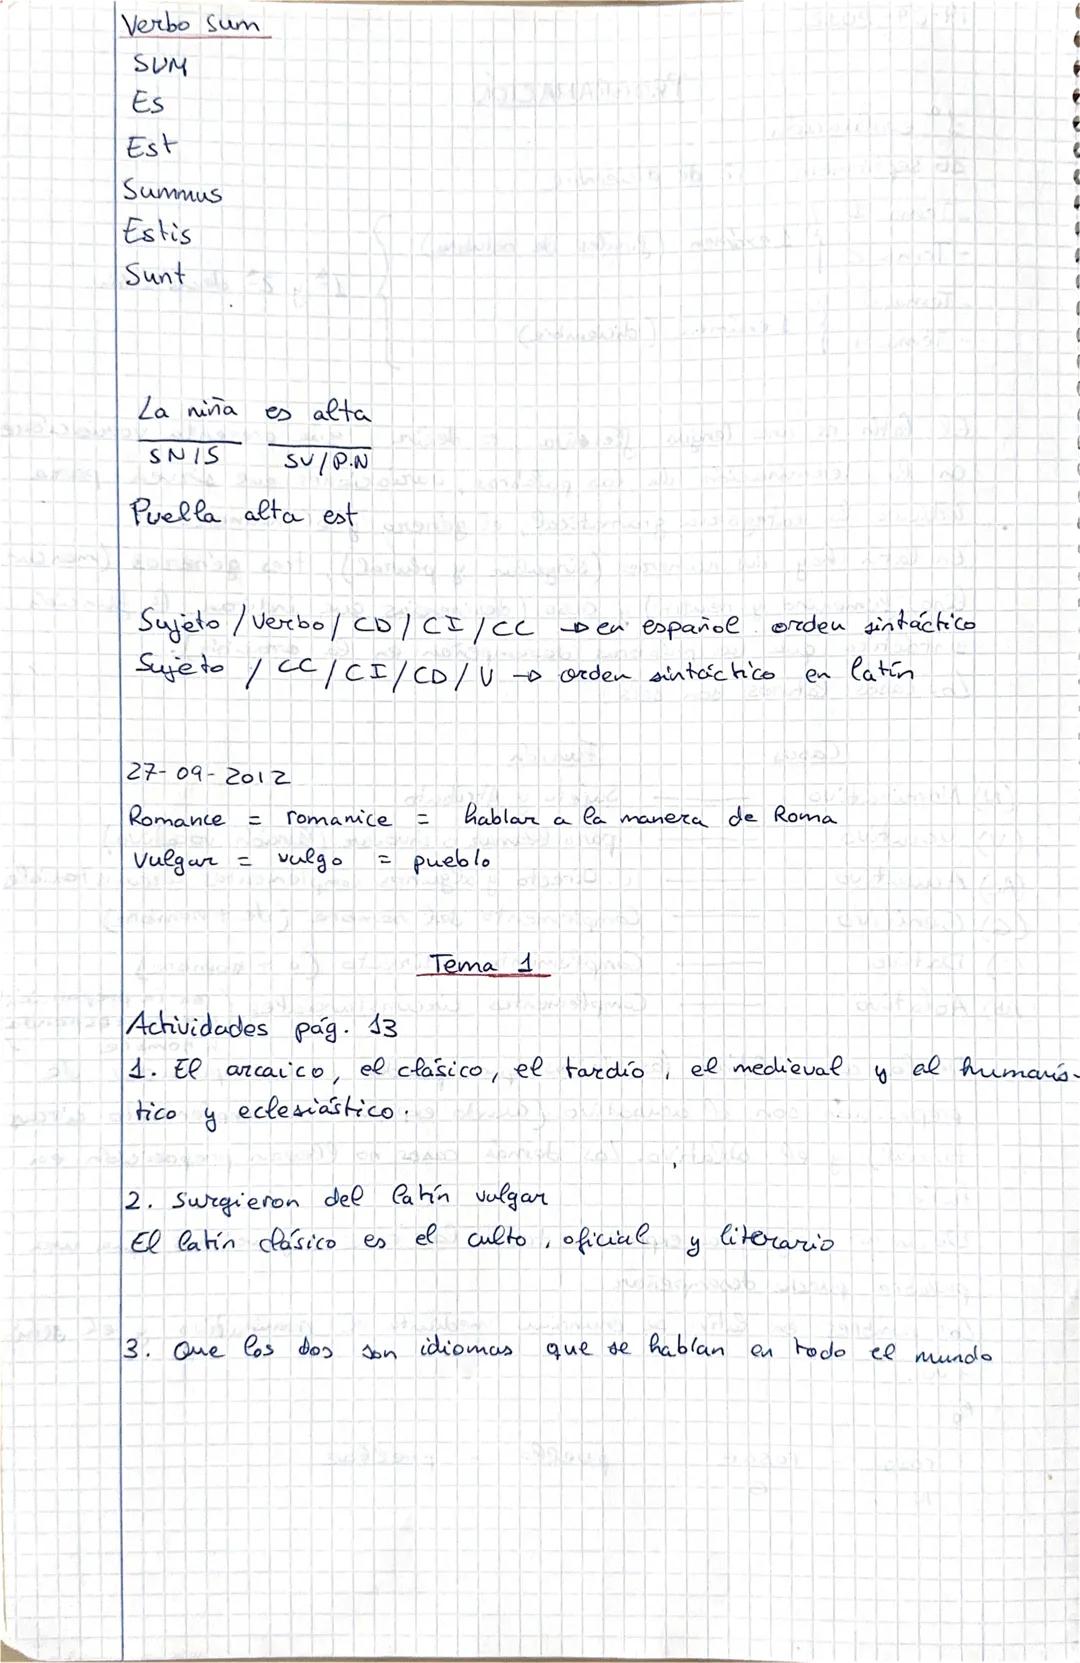 Verbo sum
SUM
Es
Est
Summus
Estis
Sunt
La niña es alta
SN/S SV/P.N
Puella alta est
Sujeto / Verbo / CD / CI / CC → en español orden sintáctico
Sujeto / CC / CI / CD / V → orden sintáctico en latín
27-09-2012
Romance = romanice = hablar a la manera de Roma
Vulgar = vulgo = pueblo
Tema 1
Actividades pág. 13
1. El arcaico, el clásico, el tardío, el medieval y al humanís-
tico y eclesiástico.
2. Surgieron del latín vulgar
El latín clásico es el culto, oficial y literario
3. Que los dos son idiomas que se hablan en todo el mundo